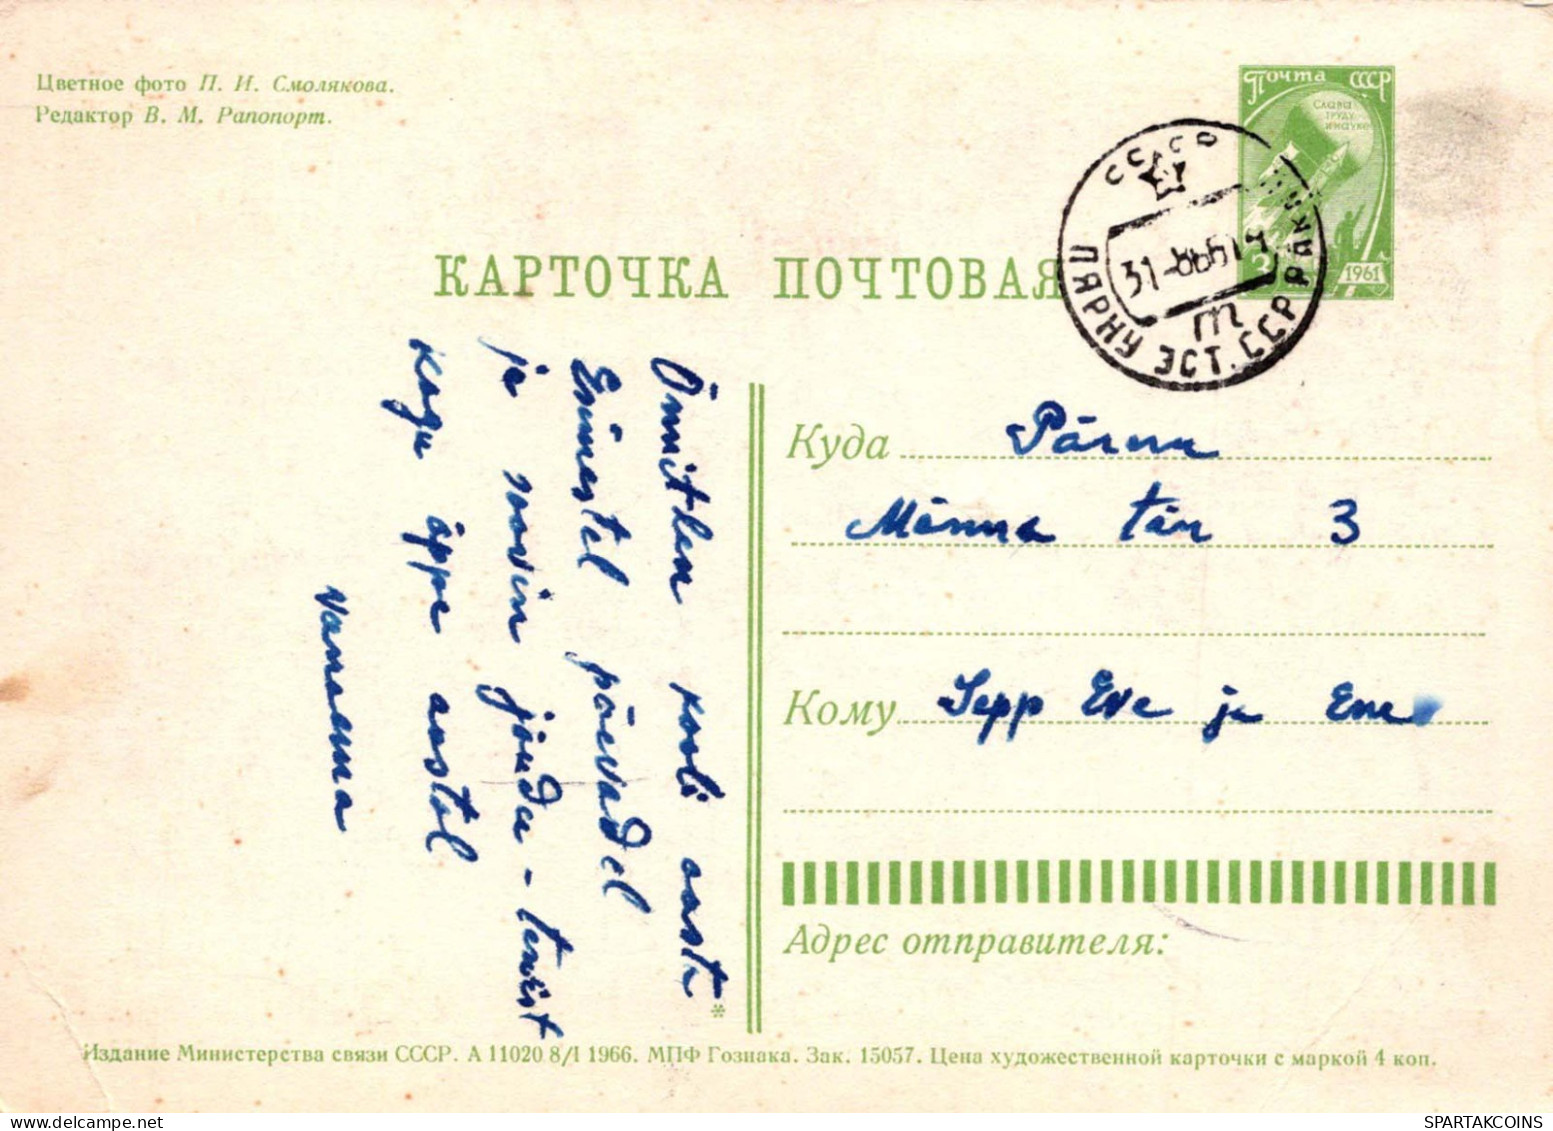 Цветное фото П. И. Смолякова.
Редактор В. М. Рапопорт.
Почта СССР
Слава
труду
и науке
1961
СССР
31-8-66
ПЯРНУ ЭСТ. ССР
КАРТОЧКА ПОЧТОВАЯ
Õnnitlen kooli aasta
Esimestel päevadel
ja soovin jõudu-tervist
Kogu õppe aastal
Vanaema
Куда Pärnu
Männa tän 3
Кому Sepp Eve ja Ene
Адрес отправителя:
*
Издание Министерства связи СССР. А 11020 8/I 1966. МПФ Гознака. Зак. 15057. Цена художественной карточки с маркой 4 коп.
SPARTAKCOINS